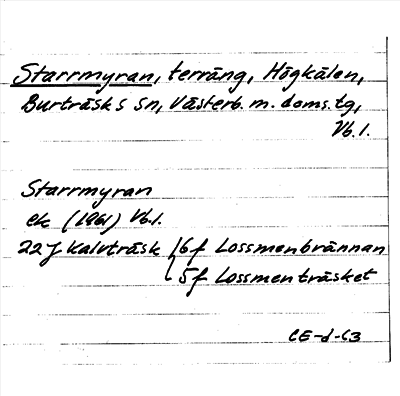 Starrmyran, terräng, Högkålen,
Burträsks sn, Västerb. m. doms.tg,
Vb.l.
Starrmyran
ek (1961) Vb.l.
22 J Kalvträsk 6f Lossmenbrännan
5f Lossmenträsket
CE-d-63